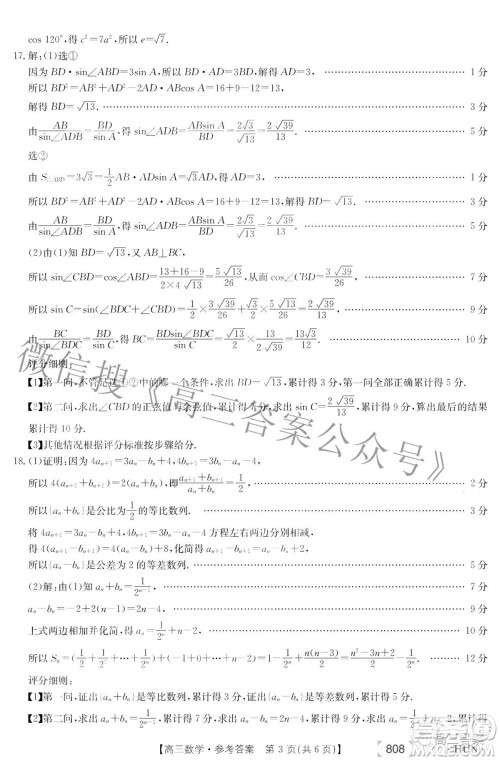 cos 120°,得 c²=7a²,所以 e=√7.
17.解:(1)选①
因为 BD·sin∠ABD=3sin A,所以 AD·BD=3BD,解得 AD=3, 1分
所以 BD²=AB²+AD²-2AD·ABcos A=16+9-12=13,
解得 BD=√13. 3分
由 AB/sin∠ADB=BD/sin A,得 sin∠ADB=ABsin A/BD=2√3/√13=2√39/13. 5分
选②
由 S△ABD=3√3=1/2 AB·ADsin A=√3AD,得 AD=3, 1分
所以 BD²=AB²+AD²-2AD·ABcos A=16+9-12=13,解得 BD=√13. 3分
由 AB/sin∠ADB=BD/sin A,得 sin∠ADB=ABsin A/BD=2√3/√13=2√39/13. 5分
(2)由(1)知 BD=√13,又 AB⊥BC,
所以 sin∠CBD=cos∠ABD=(13+16-9)/(2×4√13)=5√13/26,从而 cos∠CBD=3√39/26. 7分
所以 sin C=1/2×3√39/26+√3/2×5√13/26=2√39/13. 9分
由 BC/sin∠BDC=BD/sin C,得 BC=BDsin∠BDC/sin C=13√3/12. 10分
评分细则:
【1】第一问,不管是选①②中的哪一个条件,求出 BD=√13,累计得 3 分,第一问全部正确,累计得 5 分.
【2】第二问,求出∠CBD 的正弦值与余弦值,累计得 7 分,求出 sin C=2√39/13,累计得 9 分,求出最后的结果,累计得 10 分.
【3】其他情况根据评分标准按步骤给分.
18.(1)证明:因为 4aₙ₊₁=3aₙ-bₙ+4,4bₙ₊₁=3bₙ-aₙ-4,
所以 4(aₙ₊₁+bₙ₊₁)=2(aₙ+bₙ),即 (aₙ₊₁+bₙ₊₁)/(aₙ+bₙ)=1/2, 2分
所以{aₙ+bₙ}是公比为 1/2 的等比数列. 3分
将 4aₙ₊₁=3aₙ-bₙ+4,4bₙ₊₁=3bₙ-aₙ-4 方程左右两边分别相减,
得 4(aₙ₊₁-bₙ₊₁)=4(aₙ-bₙ)+8,化简得 aₙ₊₁-bₙ₊₁=aₙ-bₙ+2, 5分
所以{aₙ-bₙ}是公差为 2 的等差数列. 6分
(2)解:由(1)知 aₙ+bₙ=1/2ⁿ⁻¹, 7分
aₙ-bₙ=-2+2(n-1)=2n-4, 9分
上式两边相加并化简,得 aₙ=1/2ⁿ+n-2, 10分
所以 Sₙ=(1/2+1/2²+…+1/2ⁿ)+(-1+0+1+…+n-2)=1-1/2ⁿ+n(n-3)/2=(n²-3n+2)/2-1/2ⁿ. 12分
评分细则:
【1】第一问,证出{aₙ+bₙ}是等比数列,累计得 3 分,证出{aₙ-bₙ}是等差数列,累计得 6 分.
【高三数学·参考答案 第 3 页(共 6 页)】 808
微信搜《高三答案公众号》